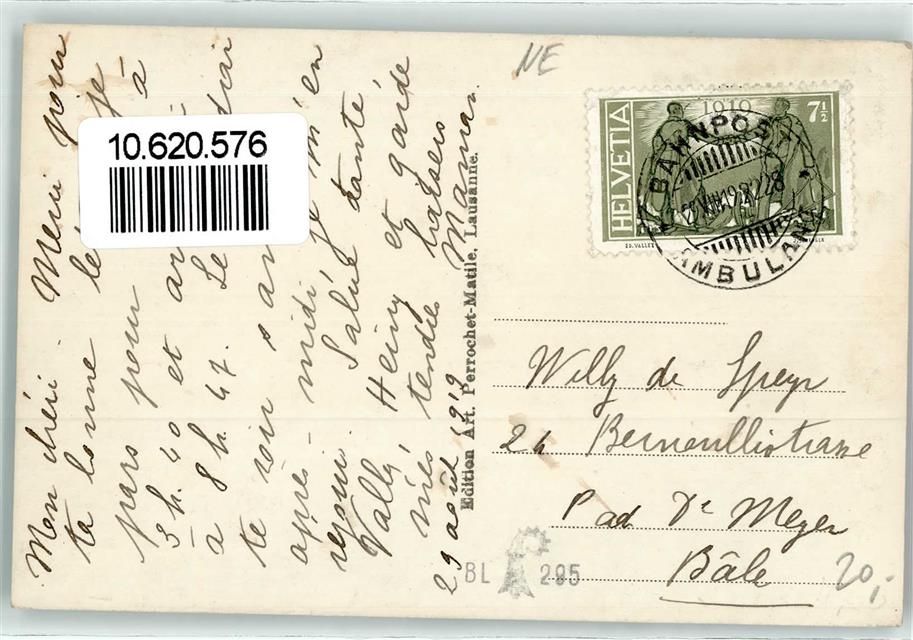 Mon chéri. Merci pour
ta bonne le je
pars pour à
3 h. 40 et ar
à 8 h. 47. Le
te voir sa
après-midi je m'en
rejouis. Salue tante
Vally, Heiny et garde
mes tendres baisers
29 août 1919 Maman.
Edition Art. Perrochet-Matile, Lausanne.
10.620.576
NE
1919
7½
HELVETIA
ED. VALLET
BAHNPOST
AMBULANT
Willy de Speyr
24 Bernoullistrasse
Pad Dr Meyer
Bâle
BL 295
20,-